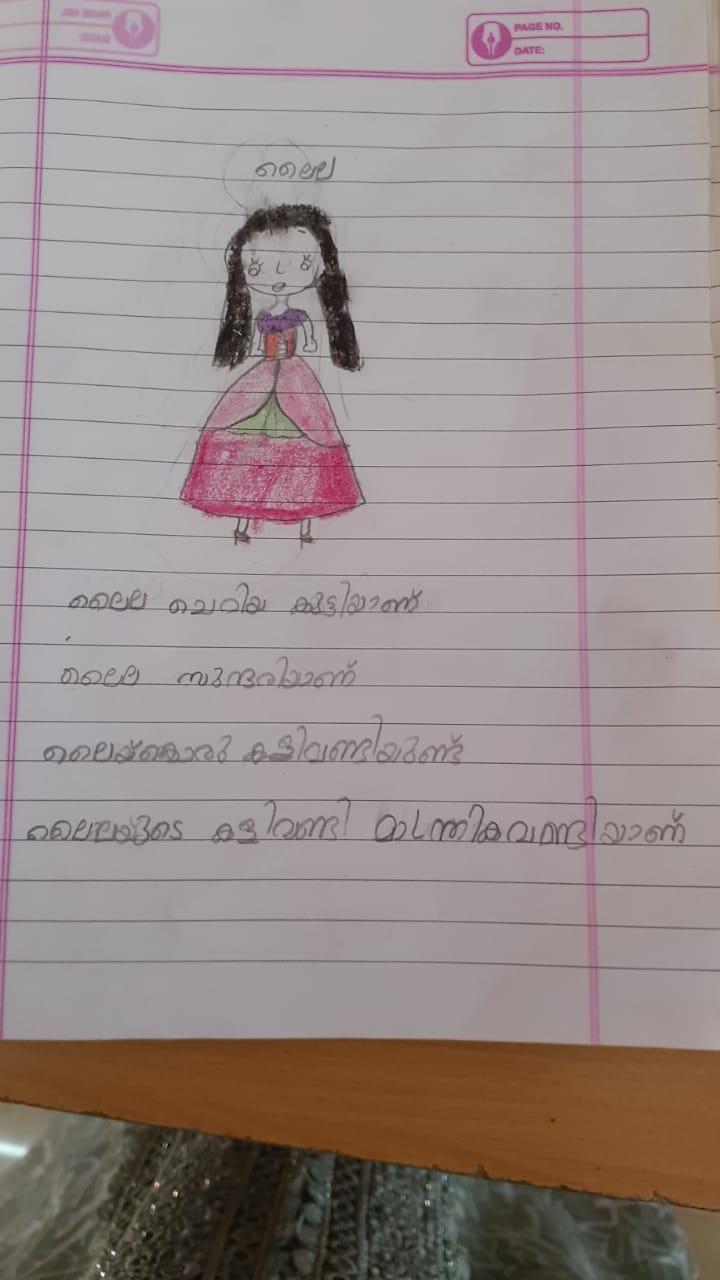 PAGE NO.
DATE:
ലൈല
ലൈല ചെറിയ കുട്ടിയാണ്
ലൈല സുന്ദരിയാണ്
ലൈയ്ക്കൊരു കളിവണ്ടിയുണ്ട്
ലൈലയുടെ കളിവണ്ടി മാന്ത്രികവണ്ടിയാണ്